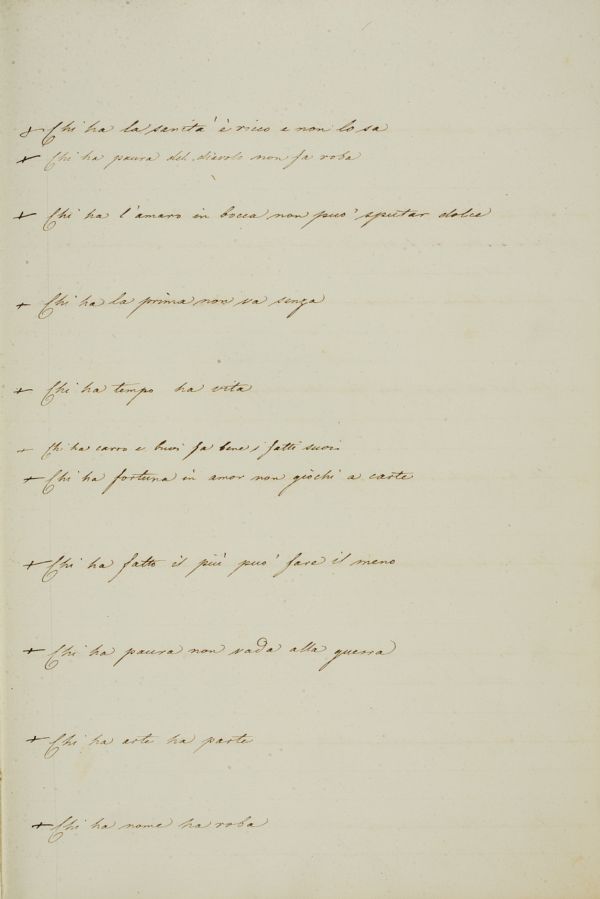 + Chi ha la sanita' è ricco e non lo sa
+ Chi ha paura del diavolo non fa roba
+ Chi ha l'amaro in bocca non puo' sputar dolce
+ Chi ha la prima non va senza
+ Chi ha tempo ha vita
+ Chi ha carro e buoi fa bene i fatti suoi
+ Chi ha fortuna in amor non giochi a carte
+ Chi ha fatto il più puo' fare il meno
+ Chi ha paura non vada alla guerra
+ Chi ha arte ha parte
+ Chi ha nome ha roba